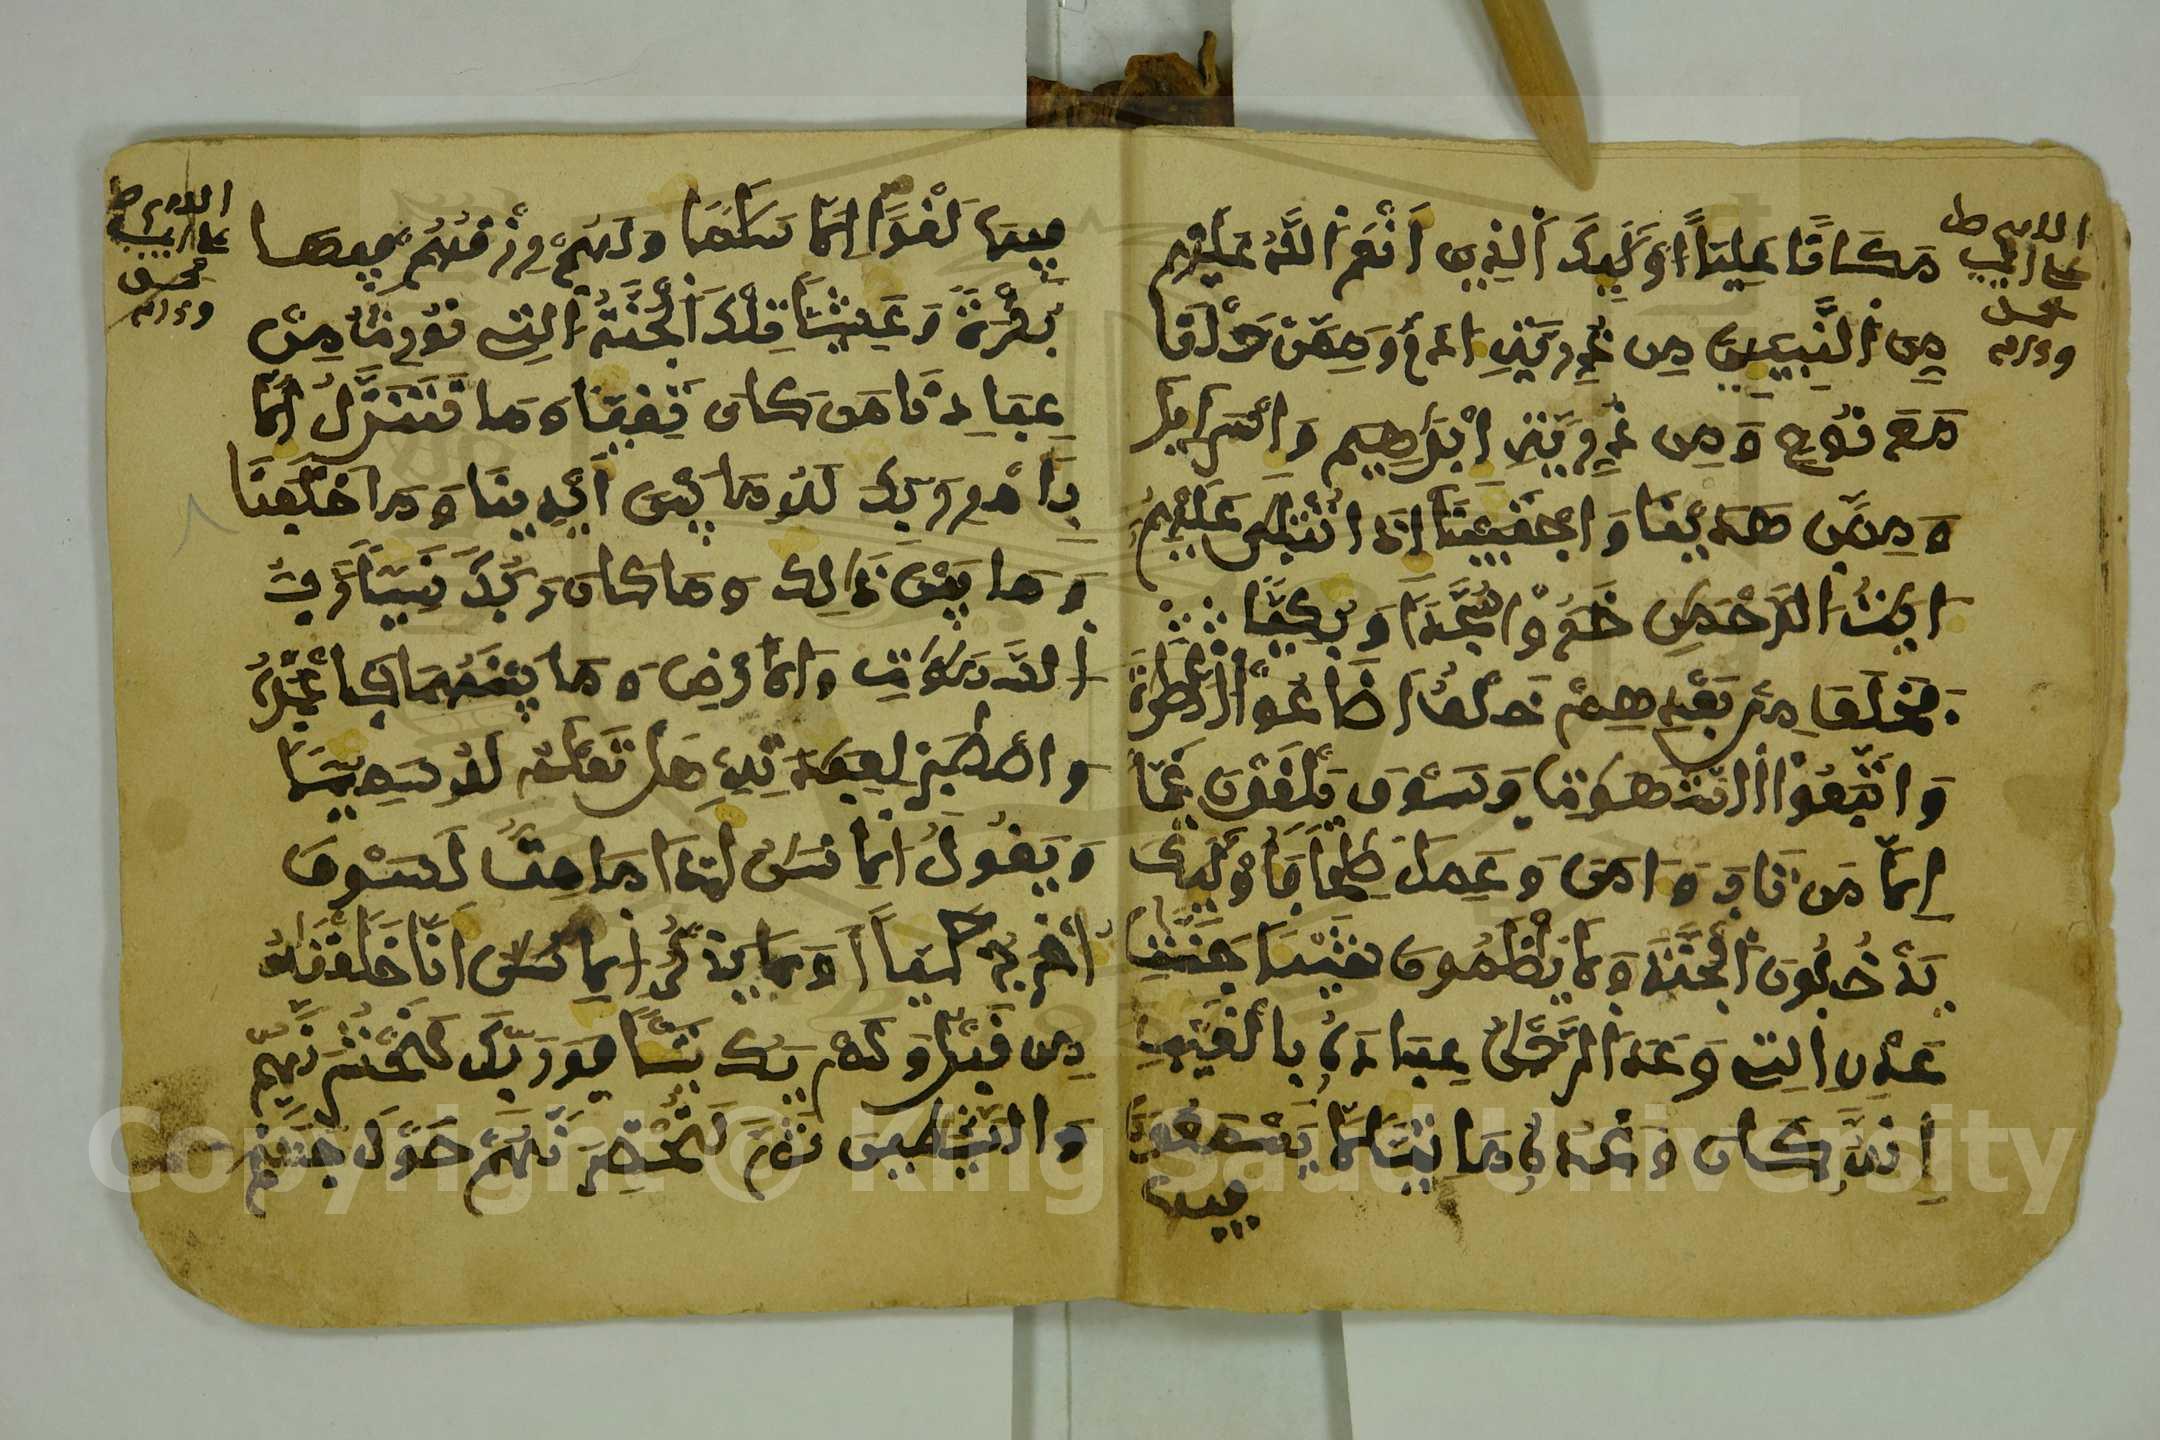 اللهم صل
على الحبيب
محمد
وءاله
مَكَانًا عَلِيًّا اُوْلَٰٓئِكَ اَلذِينَ أَنْعَمَ اَللَّهُ عَلَيْهِم
مِّنَ اَلنَّبِيـِٕينَ مِن ذُرِّيَّةِ ءَادَمَ وَمِمَّنْ حَمَلْنَا
مَعَ نُوحٍ وَمِن ذُرِّيَّةِ إِبْرَٰهِيمَ وَإِسْرَآءِيلَ
وَمِمَّنْ هَدَيْنَا وَاجْتَبَيْنَا إِذَا تُتْلَىٰ عَلَيْهِمُ
ءَايَٰتُ الرَّحْمَٰنِ خَرُّوا سُجَّدًا وَبُكِيًّا
فَخَلَفَ مِنۢ بَعْدِهِمْ خَلْفٌ أَضَاعُوا الصَّلَوٰةَ
وَاتَّبَعُوا الشَّهَوَٰتِ فَسَوْفَ يَلْقَوْنَ غَيًّا
إِلَّا مَن تَابَ وَءَامَنَ وَعَمِلَ صَٰلِحًا فَأُوْلَٰٓئِكَ
يَدْخُلُونَ اَلْجَنَّةَ وَلَا يُظْلَمُونَ شَيْـًٔا جَنَّٰتِ
عَدْنٍ اِلتِے وَعَدَ الرَّحْمَٰنُ عِبَادَهُ بِالْغَيْبِ
إِنَّهُ كَانَ وَعْدُهُ مَاتِيًّا لَّا يَسْمَعُونَ
فِيهَا
اللهم صل
على الحبيب
محمد
وءاله
فِيهَا لَغْوًا إِلَّا سَلَٰمًا وَلَهُمْ رِزْقُهُمْ فِيهَا
بُكْرَةً وَعَشِيًّا تِلْكَ اَلْجَنَّةُ اُلتِے نُورِثُ مِنْ
عِبَادِنَا مَن كَانَ تَقِيًّا وَمَا نَتَنَزَّلُ إِلَّا
بِأَمْرِ رَبِّكَ لَهُ مَا بَيْنَ أَيْدِينَا وَمَا خَلْفَنَا
وَمَا بَيْنَ ذَٰلِكَ وَمَا كَانَ رَبُّكَ نَسِيًّا رَّبُّ
اُلسَّمَٰوَٰتِ وَالْأَرْضِ وَمَا بَيْنَهُمَا فَاعْبُدْهُ
وَاصْطَبِرْ لِعِبَٰدَتِهِ هَلْ تَعْلَمُ لَهُ سَمِيًّا
وَيَقُولُ اُلْإِنسَٰنُ أَ.ذَا مَا مِتُّ لَسَوْفَ
أُخْرَجُ حَيًّا أَوَلَا يَذْكُرُ اُلْإِنسَٰنُ أَنَّا خَلَقْنَٰهُ
مِن قَبْلُ وَلَمْ يَكُ شَيْـًٔا فَوَرَبِّكَ لَنَحْشُرَنَّهُمْ
وَالشَّيَٰطِينَ ثُمَّ لَنُحْضِرَنَّهُمْ حَوْلَ جَهَنَّمَ